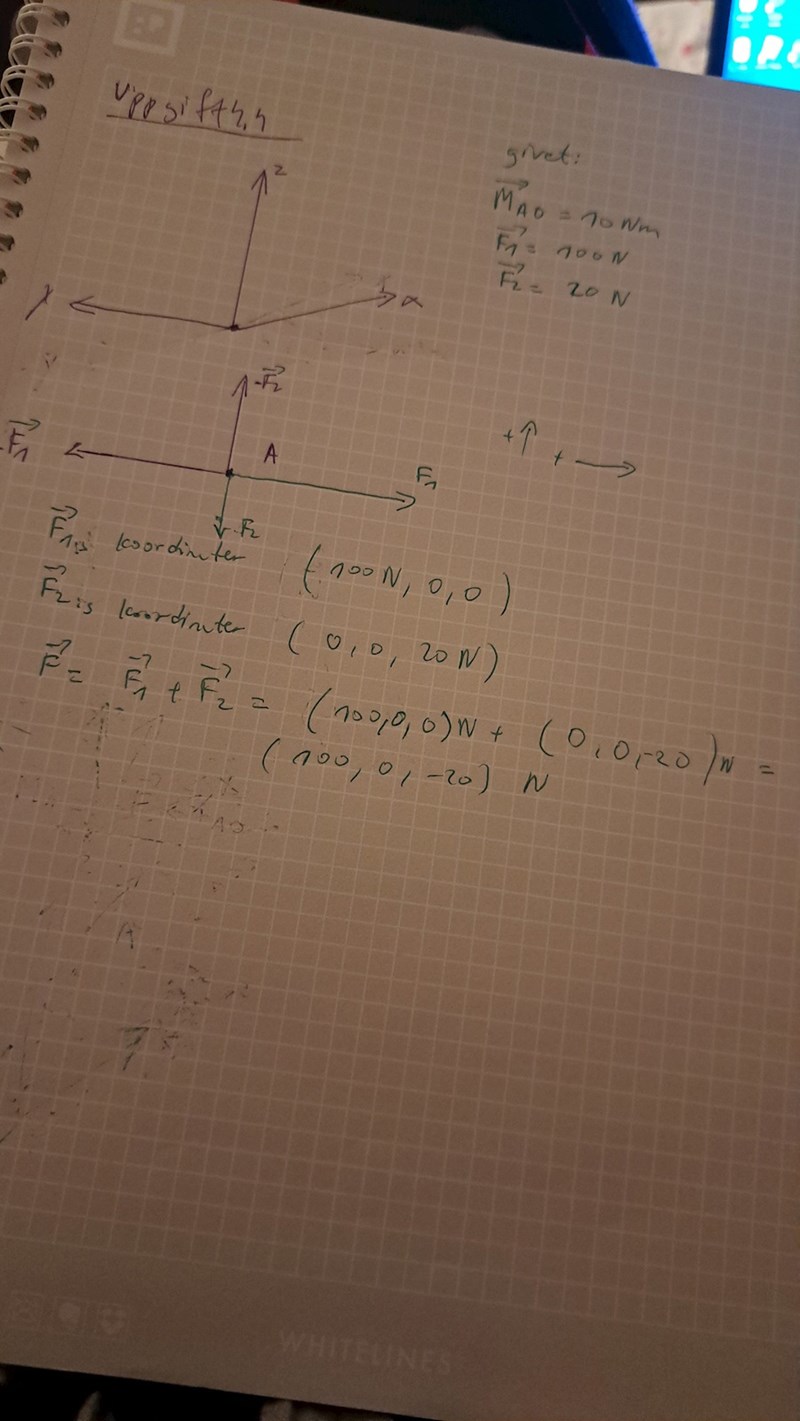 Uppgift 4.4
givet:
M⃗AO = 10 Nm
F⃗1 = 100 N
F⃗2 = 20 N
z
y
x
-F⃗2
-F⃗1
A
F1
-F2
+↑ + →
F⃗1:s koordinater (100N, 0, 0)
F⃗2:s koordinater (0, 0, 20N)
F⃗ = F⃗1 + F⃗2 = (100,0,0)N + (0,0,-20)N =
(100, 0, -20) N
WHITELINES